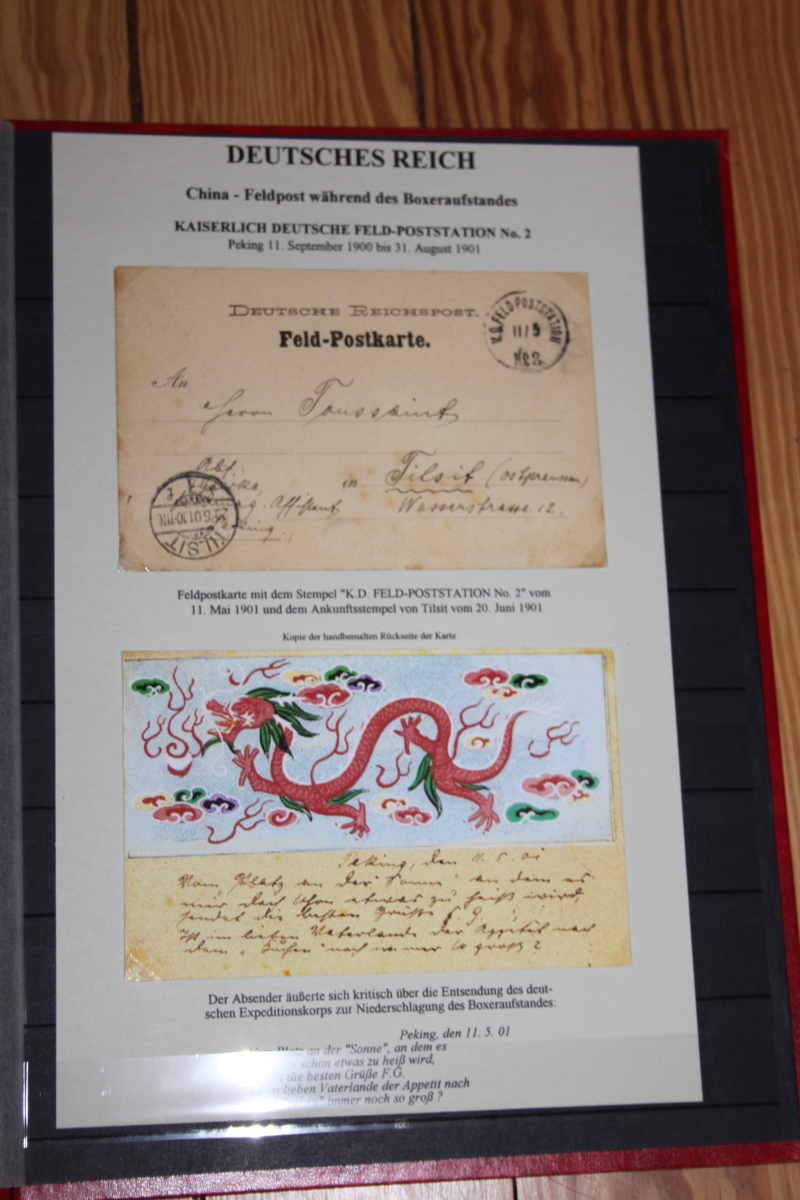 DEUTSCHES REICH
China - Feldpost während des Boxeraufstandes
KAISERLICH DEUTSCHE FELD-POSTSTATION No. 2
Peking 11. September 1900 bis 31. August 1901
DEUTSCHE REICHSPOST.
Feld-Postkarte.
K.D. FELD-POSTSTATION
11/5
No 2.
An
Herrn Toussaint
Abt.
in Tilsit (Ostpreussen)
Assistent Wasserstrasse 12.
Peking
TILSIT
Feldpostkarte mit dem Stempel "K.D. FELD-POSTSTATION No. 2" vom
11. Mai 1901 und dem Ankunftsstempel von Tilsit vom 20. Juni 1901
Kopie der handbemalten Rückseite der Karte
Peking, den 11. 5. 01
Vom Platz an der "Sonne" an dem es
mir doch schon etwas zu heiß wird,
sendet die besten Grüße F. G.
Ist im lieben Vaterlande der Appetit nach
dem "Kuchen" noch immer so groß?
Der Absender äußerte sich kritisch über die Entsendung des deut-
schen Expeditionskorps zur Niederschlagung des Boxeraufstandes:
Peking, den 11. 5. 01
Vom Platz an der "Sonne", an dem es
schon etwas zu heiß wird,
die besten Grüße F.G.
im lieben Vaterlande der Appetit nach
immer noch so groß ?